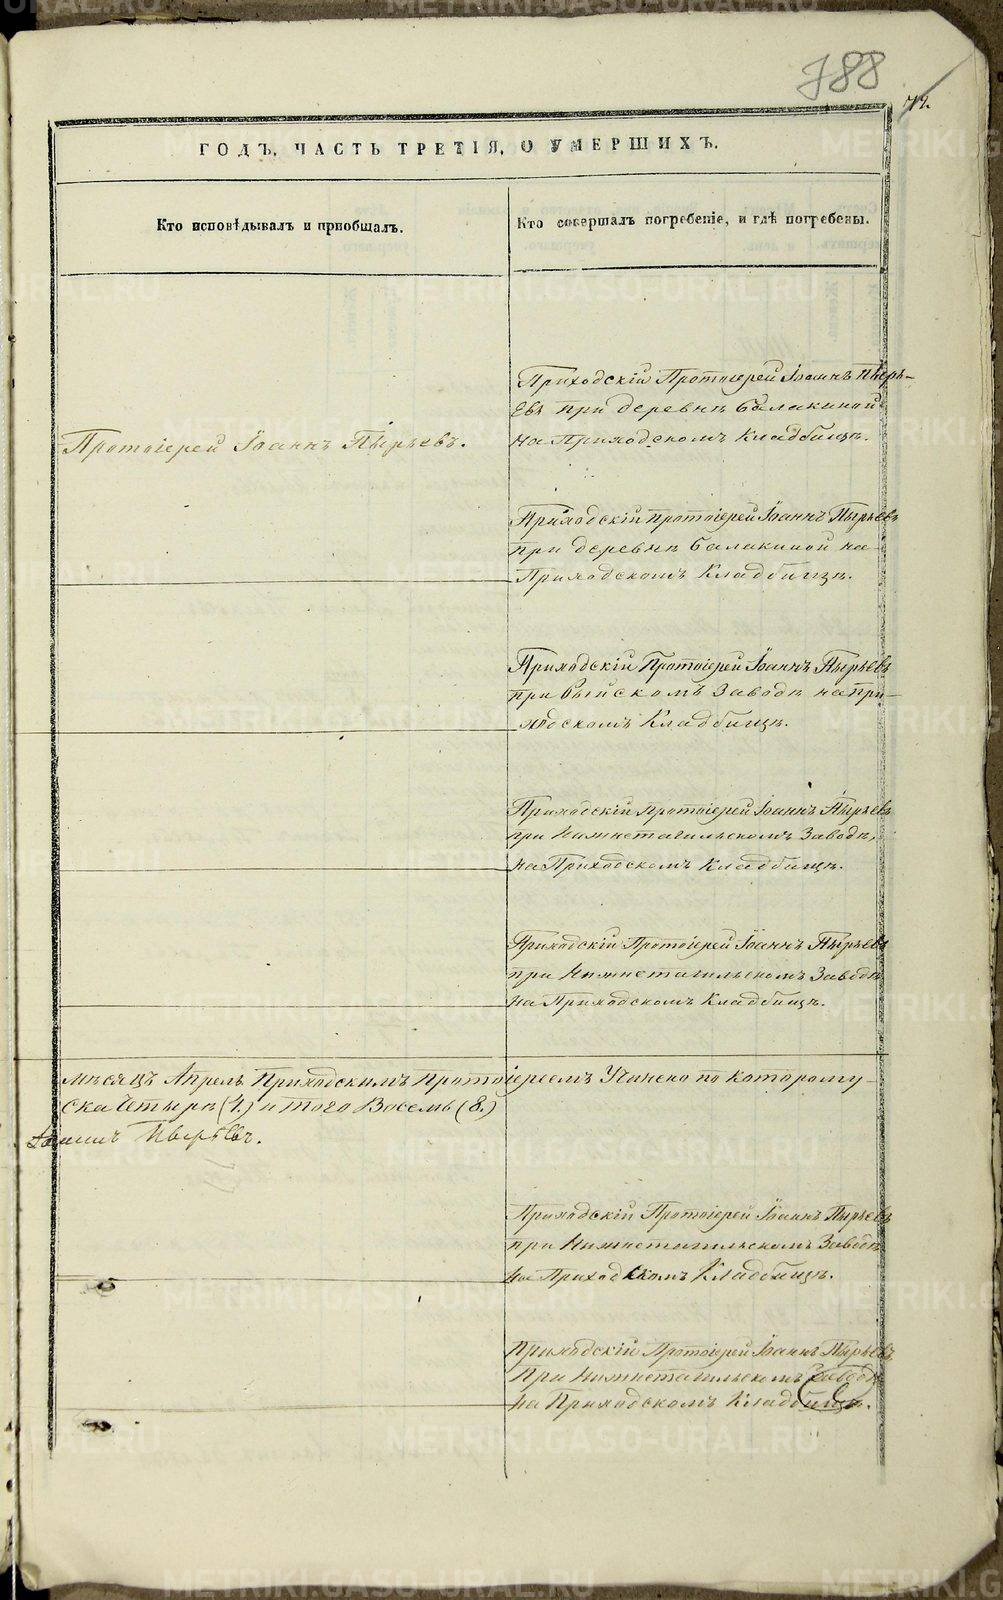 788
72.
ГОДЪ, ЧАСТЬ ТРЕТІЯ, О УМЕРШИХЪ.
Кто исповѣдывалъ и пріобщалъ.
Кто совершалъ погребеніе, и гдѣ погребены.
Приходскій Протоіерей Іоаннъ Пырь-
евъ при деревнѣ Балакиной
на Приходскомъ Кладбищѣ.
Протоіерей Іоаннъ Пырьевъ.
Приходскій протоіерей Іоаннъ Пырьевъ
при деревнѣ Балакиной на
Приходскомъ Кладбищѣ.
Приходскій Протоіерей Іоаннъ Пырьевъ
при Выйскомъ Заводѣ на при-
ходскомъ Кладбищѣ.
Приходскій протоіерей Іоаннъ Пырьевъ
при Нижнетагильскомъ Заводѣ,
на Приходскомъ Кладбищѣ.
Приходскій Протоіерей Іоаннъ Пырьевъ
при Нижнетагильскомъ Заводѣ
на Приходскомъ Кладбищѣ.
мѣсяцъ Апрель Приходскимъ протоіереемъ Учинено по которому
ска Четыре (4.) итого Восемь (8.)
Приходскій Протоіерей Іоаннъ Пырьевъ
при Нижнетагильскомъ Заводѣ
на Приходскомъ Кладбищѣ.
Приходскій Протоіерей Іоаннъ Пырьевъ
При Нижнетагильскомъ Заводѣ
на Приходскомъ Кладбищѣ.
METRIKI.GASO-URAL.RU